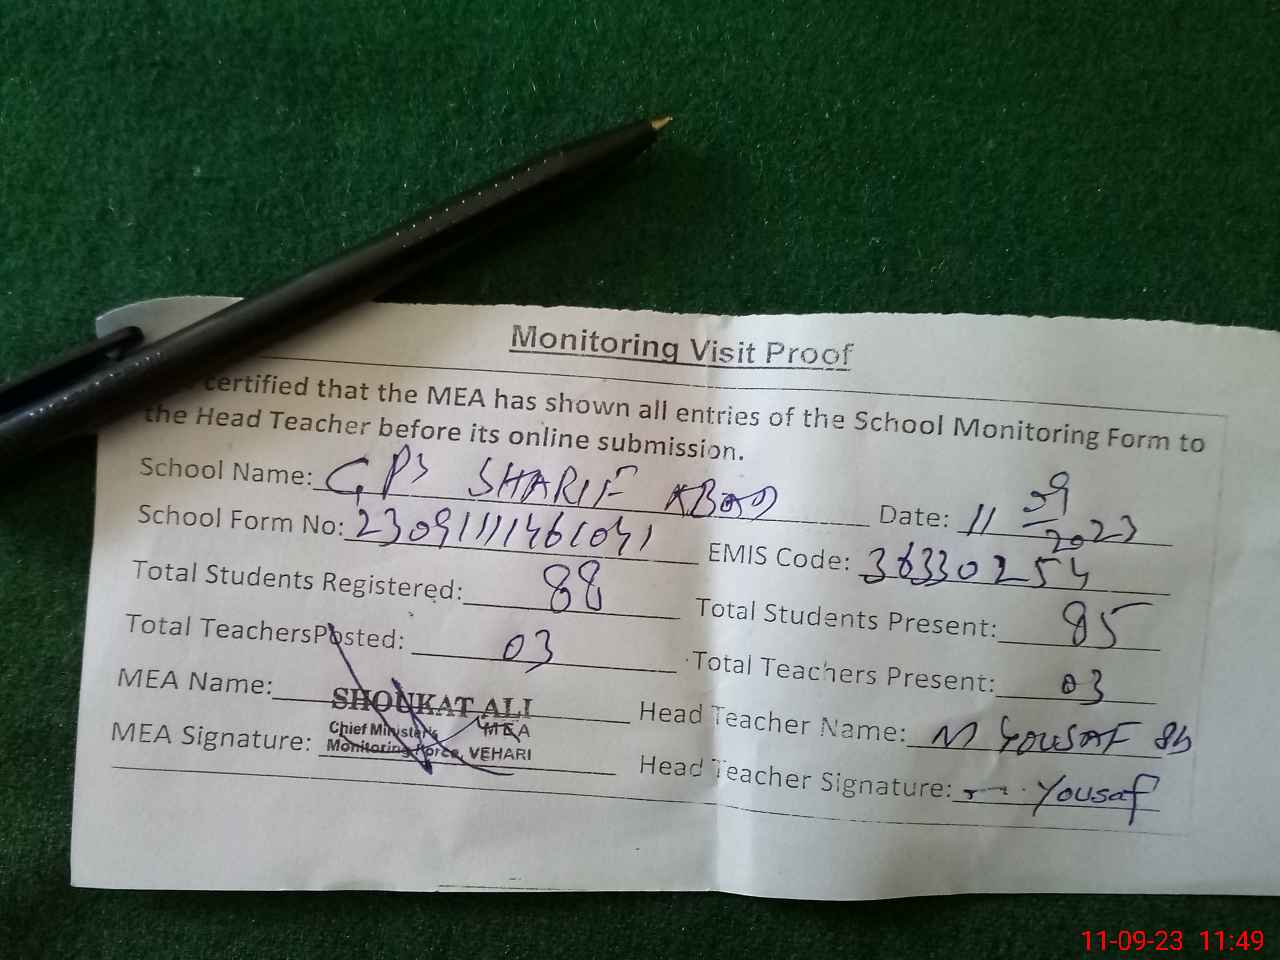 Monitoring Visit Proof
certified that the MEA has shown all entries of the School Monitoring Form to
the Head Teacher before its online submission.
School Name: GPS SHARIF ABAD Date: 11 09 2023
School Form No: 23091111461041 EMIS Code: 36330254
Total Students Registered: 88 Total Students Present: 85
Total TeachersPosted: 03 Total Teachers Present: 03
MEA Name: SHOUKAT ALI Head Teacher Name: M YOUSAF
Chief Minister's MEA
MEA Signature: Monitoring Force, VEHARI Head Teacher Signature: Yousaf
11-09-23 11:49